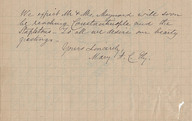 We expect Mr & Mrs Maynard will soon
be reaching Constantinople and the
Stapletons. To all we desire our hearty
greetings.
Yours sincerely
Mary A. C. Ely.